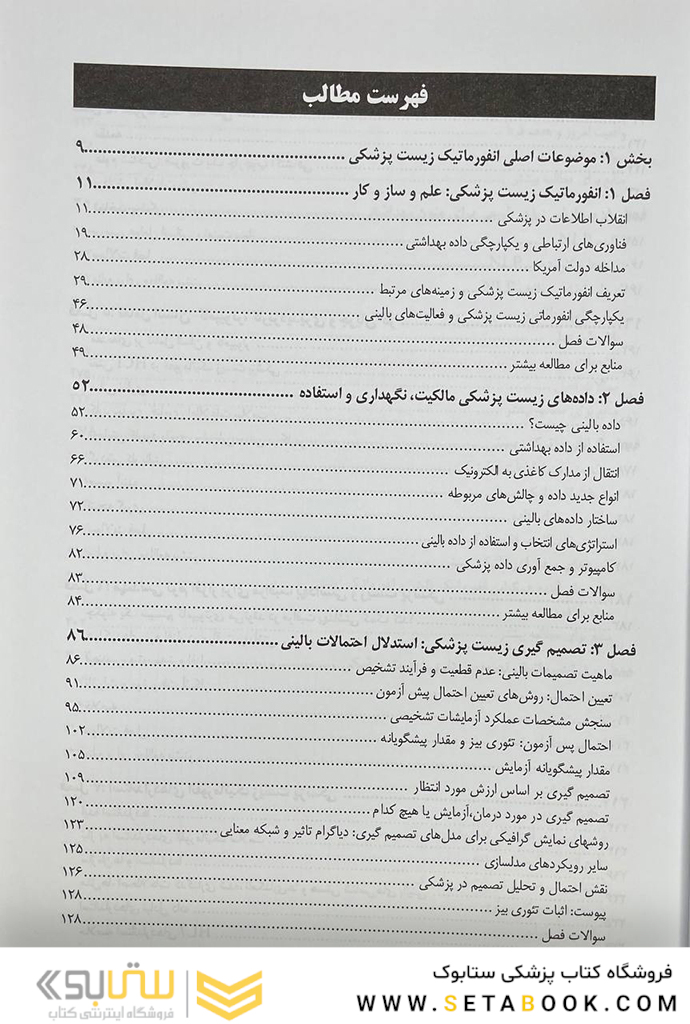 فهرست مطالب
بخش ۱: موضوعات اصلی انفورماتیک زیست پزشکی ........ ۹
فصل ۱: انفورماتیک زیست پزشکی: علم و ساز و کار ........ ۱۱
انقلاب اطلاعات در پزشکی ........ ۱۱
فناوری‌های ارتباطی و یکپارچگی داده بهداشتی ........ ۱۹
مداخله دولت آمریکا ........ ۲۸
تعریف انفورماتیک زیست پزشکی و زمینه‌های مرتبط ........ ۲۹
یکپارچگی انفورماتی زیست پزشکی و فعالیت‌های بالینی ........ ۴۶
سوالات فصل ........ ۴۸
منابع برای مطالعه بیشتر ........ ۴۹
فصل ۲: داده‌های زیست پزشکی مالکیت، نگهداری و استفاده ........ ۵۲
داده بالینی چیست؟ ........ ۵۲
استفاده از داده بهداشتی ........ ۶۰
انتقال از مدارک کاغذی به الکترونیک ........ ۶۶
انواع جدید داده و چالش‌های مربوطه ........ ۷۱
ساختار داده‌های بالینی ........ ۷۲
استراتژی‌های انتخاب و استفاده از داده بالینی ........ ۷۶
کامپیوتر و جمع آوری داده پزشکی ........ ۸۲
سوالات فصل ........ ۸۳
منابع برای مطالعه بیشتر ........ ۸۴
فصل ۳: تصمیم گیری زیست پزشکی: استدلال احتمالات بالینی ........ ۸۶
ماهیت تصمیمات بالینی: عدم قطعیت و فرآیند تشخیص ........ ۸۶
تعیین احتمال: روش‌های تعیین احتمال پیش آزمون ........ ۹۱
سنجش مشخصات عملکرد آزمایشات تشخیصی ........ ۹۵
احتمال پس آزمون: تئوری بیز و مقدار پیشگویانه ........ ۱۰۲
مقدار پیشگویانه آزمایش ........ ۱۰۵
تصمیم گیری بر اساس ارزش مورد انتظار ........ ۱۰۹
تصمیم گیری در مورد درمان،آزمایش یا هیچ کدام ........ ۱۲۰
روشهای نمایش گرافیکی برای مدل‌های تصمیم گیری: دیاگرام تاثیر و شبکه معنایی ........ ۱۲۳
سایر رویکردهای مدلسازی ........ ۱۲۵
نقش احتمال و تحلیل تصمیم در پزشکی ........ ۱۲۶
پیوست: اثبات تئوری بیز ........ ۱۲۸
سوالات فصل ........ ۱۲۸
فروشگاه کتاب پزشکی ستابوک
WWW.SETABOOK.COM
ستابوک
فروشگاه اینترنتی کتاب